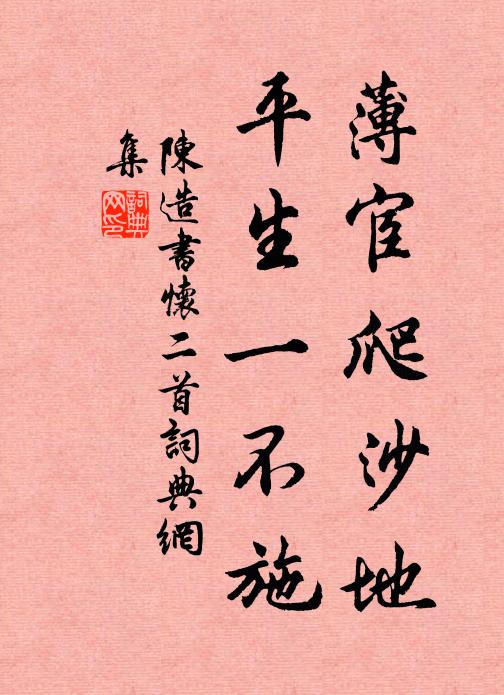 薄宦爬沙地
平生一不施
陳造書懷二首詞典網
集
詞典
网印